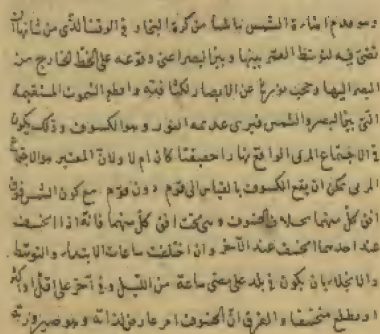 وهو عدم اضاءة الشمس ما شما من كرة البخار فى الوقت الذى من شأنها ان
تضئ فيه لتوسط القمر بينها وبين البصر اعنى وقوعه على الخط الخارج من
البصر اليها وحجب نورها عن الابصار لكثافته واقطع السموت المستقيمة
التى بين البصر والشمس فيرى عديمة النور وهو الكسوف وذلك يكون
فى الاجتماع المرى الواقع نهارا حقيقتا كان ام لا ولان المعتبر هو الاجتماع
المرى يمكن ان يقع الكسوف بالقياس الى قوم دون قوم مع كون الشمس فوق
افق كل منهما بخلاف الخسوف وهى تحت افق كل منهما فانه اذا انخسف
عند احدهما انخسف عند الآخر وان اختلفت ساعات الابتداء والتوسط
والانجلاء بان يكون فى بلد على مضى ساعة من الليل وفى آخر على اقل او اكثر
او يطلع منخسفا والفرق ان الخسوف امر عارض لذاته وهو صيرورته